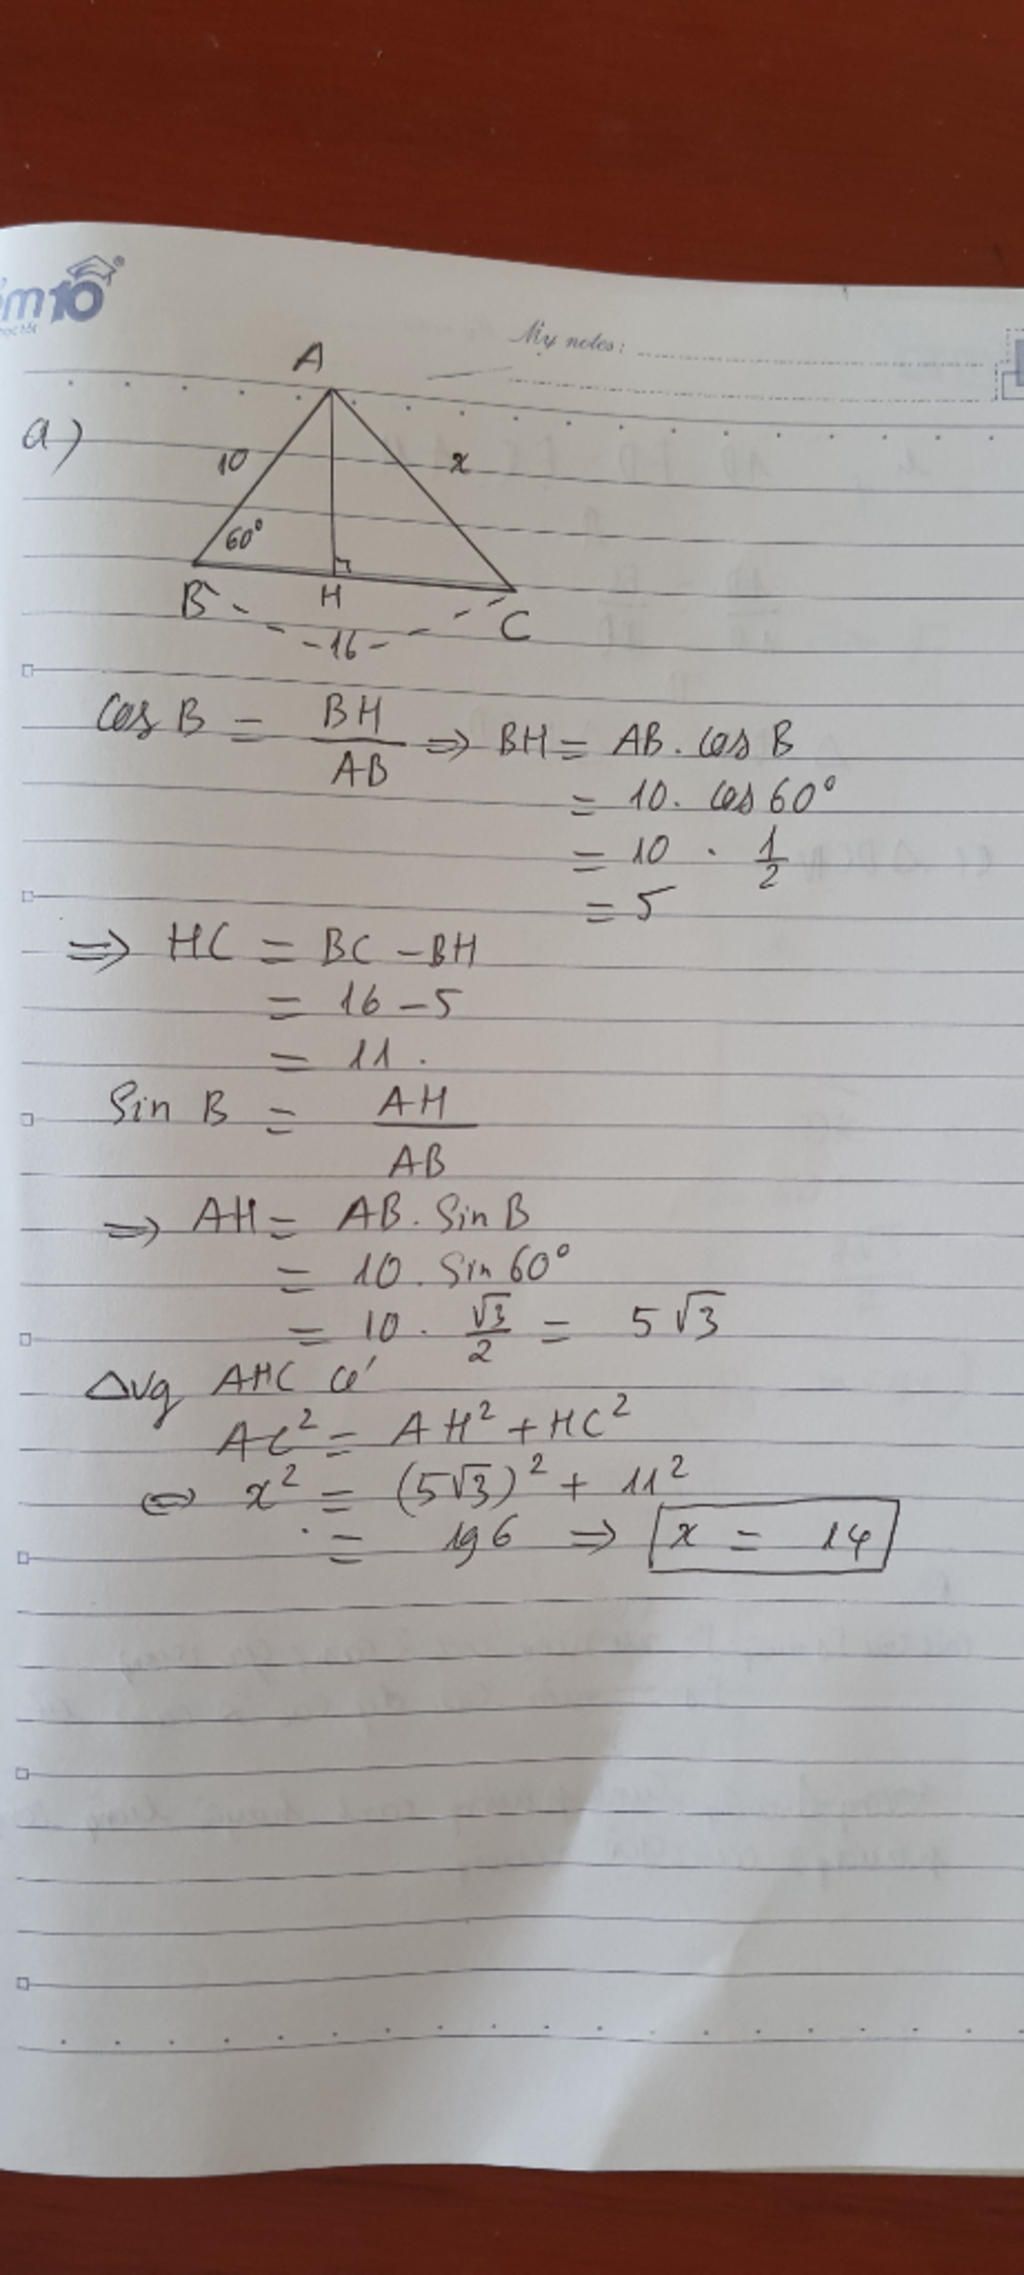 m10
My notes:
A
a)
10
x
60°
B
H
C
16
Cos B = BH/AB ⇒ BH = AB. Cos B
= 10. cos 60°
= 10 . 1/2
= 5
⇒ HC = BC - BH
= 16 - 5
= 11.
Sin B = AH/AB
⇒ AH = AB. Sin B
= 10. Sin 60°
= 10. √3/2 = 5√3
Δvg AHC có
AC² = AH² + HC²
⇔ x² = (5√3)² + 11²
= 196 ⇒ x = 14